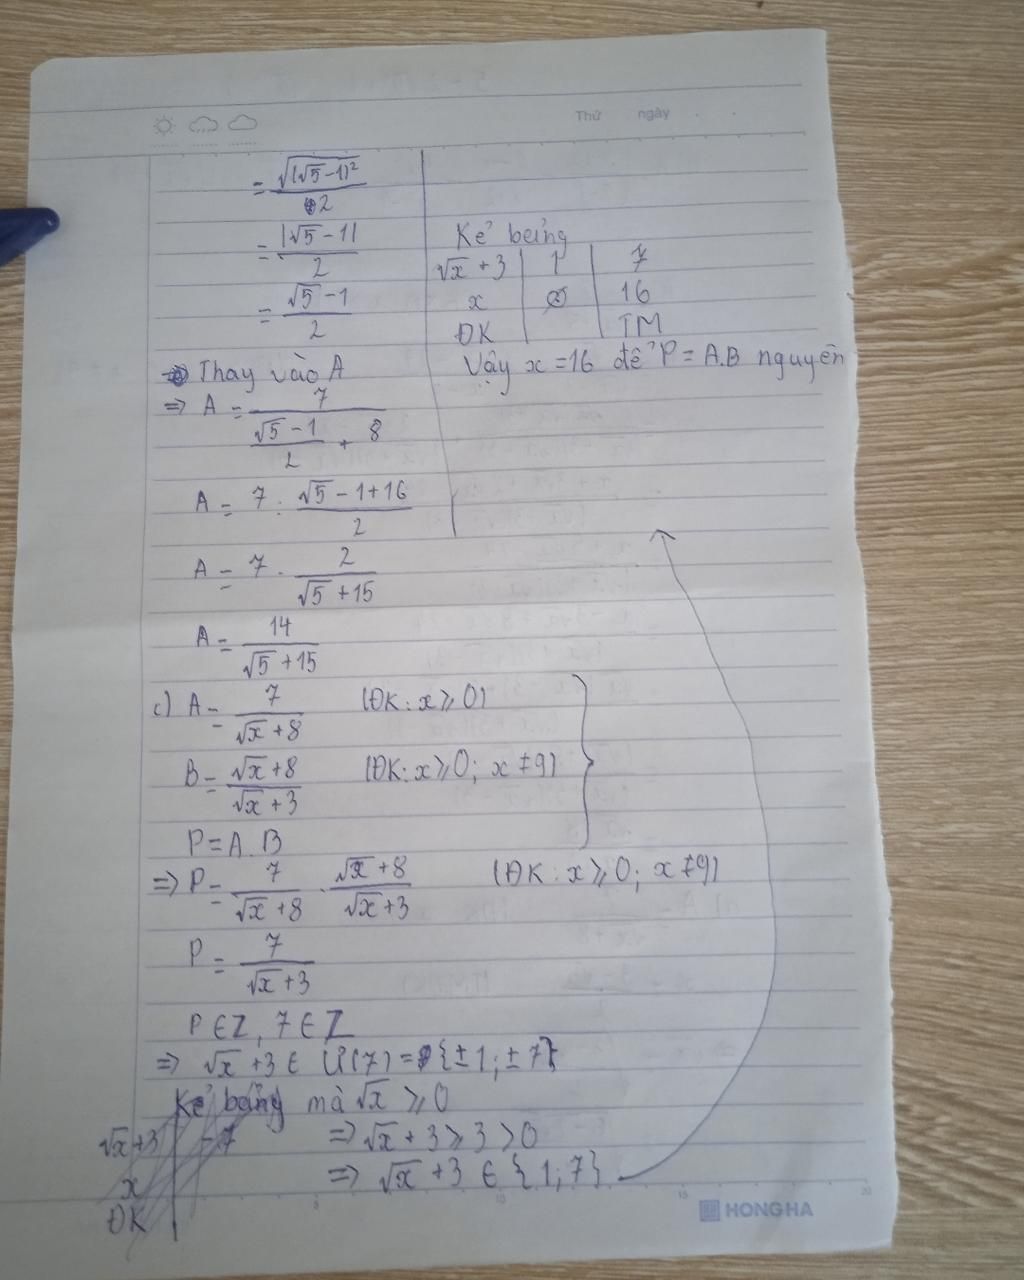 Thứ ngày
= √(√5-1)² / 2
= |√5-1| / 2
= √5-1 / 2
Thay vào A
=> A = 7 / (√5-1 / 2 + 8)
A = 7 : √5-1+16 / 2
A = 7 . 2 / √5+15
A = 14 / √5+15
c) A = 7 / √x+8 (ĐK: x ⩾ 0)
B = √x+8 / √x+3 (ĐK: x ⩾ 0; x ≠ 9)
P = A.B
=> P = 7 / √x+8 . √x+8 / √x+3 (ĐK: x ⩾ 0; x ≠ 9)
P = 7 / √x+3
P ∈ Z, 7 ∈ Z
=> √x+3 ∈ Ư(7) = {±1; ±7}
Kẻ bảng mà √x ⩾ 0
√x+3 -7 => √x+3 ⩾ 3 > 0
x => √x+3 ∈ {1; 7}
ĐK
Kẻ bảng
√x+3 1 7
x ∅ 16
ĐK TM
Vậy x = 16 để P = A.B nguyên
5 10 15 20
HONG HA